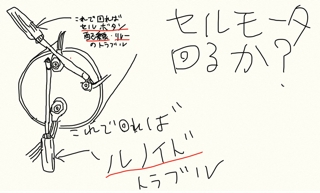 これで回れば
セルボタン
のトラブル
セルモータ
回るか？
これで回れば
ソレノイド
トラブル